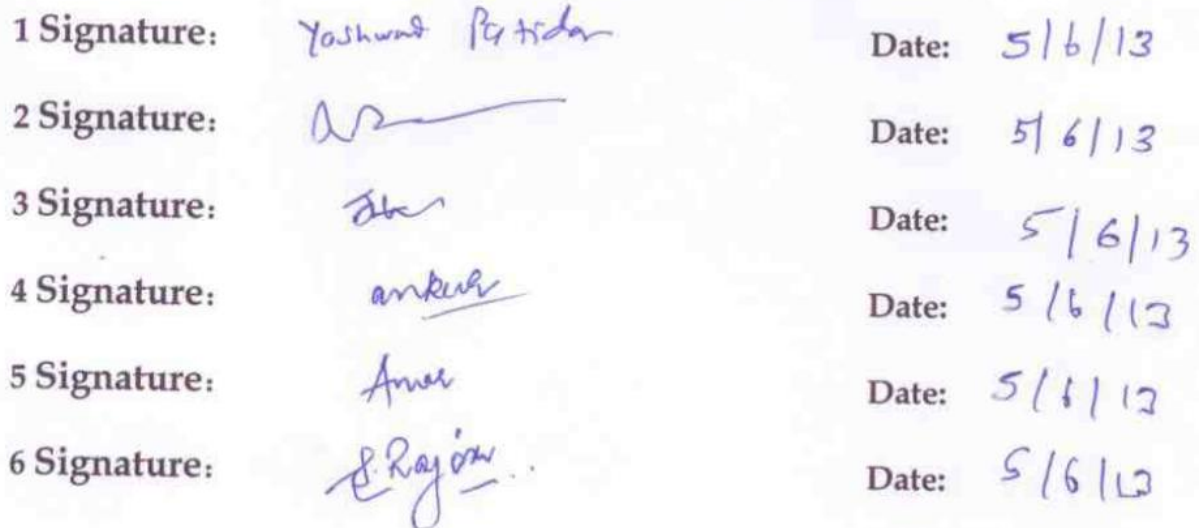 1 Signature: Yashwant Patidar Date: 5/6/13
2 Signature: Date: 5/6/13
3 Signature: Date: 5/6/13
4 Signature: ankur Date: 5/6/13
5 Signature: Amar Date: 5/6/13
6 Signature: Date: 5/6/13